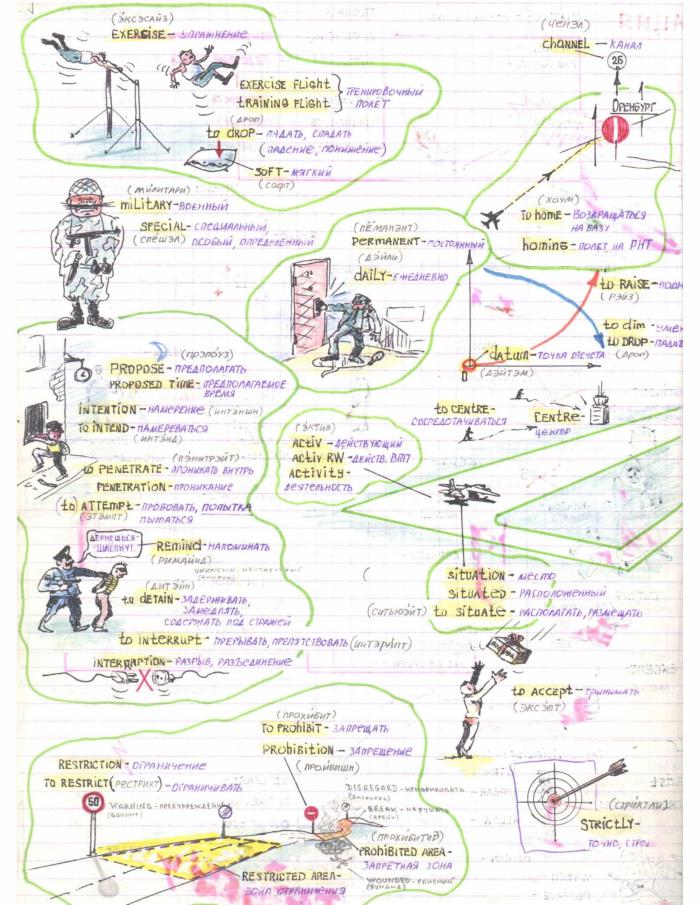 (ЭКСЭСАЙЗ)
EXERCISE - УПРАЖНЕНИЕ
EXERCISE FLIGHT
TRAINING FLIGHT
ТРЕНИРОВОЧНЫЙ
ПОЛЁТ
(ДРОП)
to DROP - ПАДАТЬ, СПАДАТЬ
(ПАДЕНИЕ, ПОНИЖЕНИЕ)
SOFT - МЯГКИЙ
(СОФТ)
(ЧЕНЭЛ)
CHANNEL - КАНАЛ
25
ОРЕНБУРГ
(ХОУМ)
TO HOME - ВОЗВРАЩАТЬСЯ
НА БАЗУ
homing - ПОЛЕТ НА РНТ
(МИЛИТАРИ)
MILITARY - ВОЕННЫЙ
SPECIAL - СПЕЦИАЛЬНЫЙ,
(СПЕШЭЛ) ОСОБЫЙ, ОПРЕДЕЛЁННЫЙ
(ПЁМАНЭНТ)
PERMANENT - ПОСТОЯННЫЙ
(ДЭЙЛИ)
DAILY - ЕЖЕДНЕВНО
to RAISE - ПОДН
(РЭЙЗ)
to dim - УМЕН
to DROP - ПАДАТ
(ДРОП)
datum - ТОЧКА ОТСЧЕТА
(ДЭЙТЭМ)
(ПРЭПОУЗ)
PROPOSE - ПРЕДПОЛАГАТЬ
PROPOSED TIME - ПРЕДПОЛАГАЕМОЕ
ВРЕМЯ
INTENTION - НАМЕРЕНИЕ (ИНТЭНШН)
TO INTEND - НАМЕРЕВАТЬСЯ
(ИНТЭНД)
(ПЭНИТРЭЙТ)
to PENETRATE - ПРОНИКАТЬ ВНУТРЬ
PENETRATION - ПРОНИКАНИЕ
(to) ATTEMPT - ПРОБОВАТЬ, ПОПЫТКА
(ЭТЭМПТ) ПЫТАТЬСЯ
to CENTRE -
СОСРЕДОТАЧИВАТЬСЯ
CENTRE -
ЦЕНТР
(ЭКТИВ)
ACTIV - ДЕЙСТВУЮЩИЙ
ACTIV RW - ДЕЙСТВ. ВПП
ACTIVITY -
ДЕЯТЕЛЬНОСТЬ
ДЁРНЕШЬСЯ -
ШЛЁПНУ!
REMIND - НАПОМИНАТЬ
(РИМАЙНД)
(ДИТЭЙН)
to DETAIN - ЗАДЕРЖИВАТЬ,
ЗАМЕДЛЯТЬ,
СОДЕРЖАТЬ ПОД СТРАЖЕЙ
to INTERRUPT - ПРЕРЫВАТЬ, ПРЕПЯТСТВОВАТЬ (ИНТЭРАПТ)
INTERRAPTION - РАЗРЫВ, РАЗЪЕДИНЕНИЕ
SITUATION - МЕСТО
SITUATED - РАСПОЛОЖЕННЫЙ
(СИТЬЮЭЙТ) to SITUATE - РАСПОЛАГАТЬ, РАЗМЕЩАТЬ
to ACCEPT - ПРИНИМАТЬ
(ЭКСЭПТ)
(ПРОХИБИТ)
TO PROHIBIT - ЗАПРЕЩАТЬ
PROHIBITION - ЗАПРЕЩЕНИЕ
(ПРОИБИШН)
RESTRICTION - ОГРАНИЧЕНИЕ
TO RESTRICT (РЕСТРИКТ) - ОГРАНИЧИВАТЬ
50
WARNING - ПРЕДУПРЕЖДЕНИЕ
(ВОНИНГ)
DISREGARD - ИГНОРИРОВАТЬ
BREAK - НАРУШАТЬ
(БРЕЙК)
(ПРОХИБИТИД)
PROHIBITED AREA -
ЗАПРЕТНАЯ ЗОНА
WOUNDED - РАНЕНЫЙ
(ВУНДИД)
RESTRICTED AREA -
ЗОНА ОГРАНИЧЕНИЯ
(СТРИКТЛИ)
STRICTLY -
ТОЧНО, СТРОГ